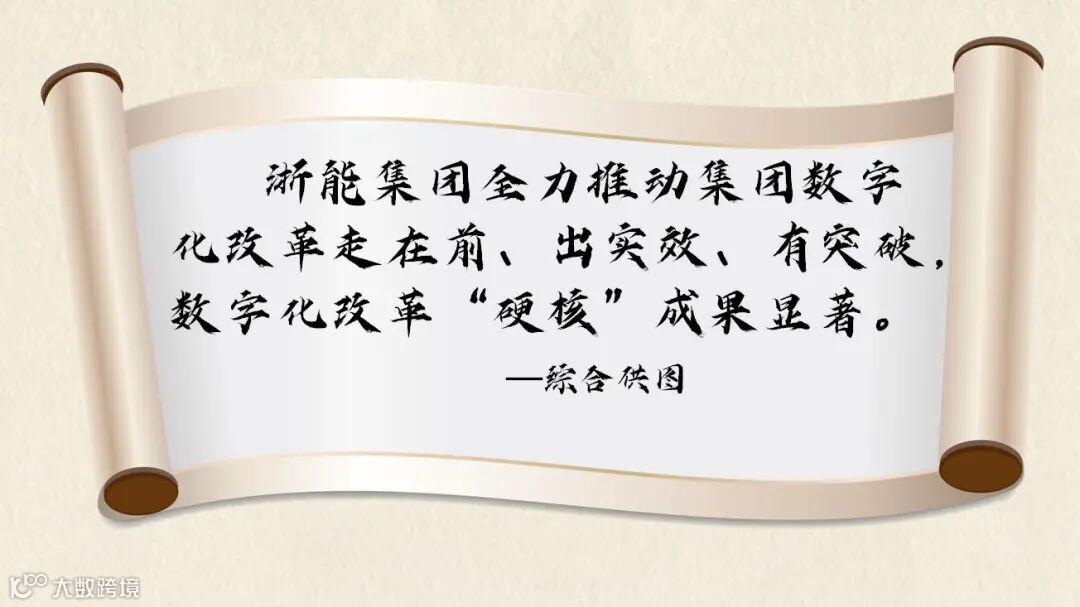 浙能集团全力推动集团数字
化改革走在前、出实效、有突破，
数字化改革“硬核”成果显著。
—综合供图
大数跨境